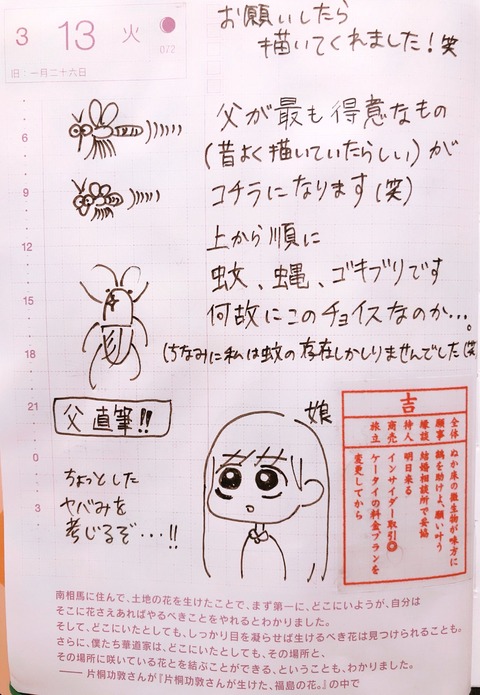 3 13 火
072
旧:一月二十六日
お願いしたら
描いてくれました!笑
父が最も得意なもの
(昔よく描いていたらしい)が
コチラになります(笑)
上から順に
蚊、蝿、ゴキブリです
何故にこのチョイスなのか…。
(ちなみに私は蚊の存在しかしりませんでした(笑)
6
9
12
15
18
21
0
3
父 直筆!!
ちょっとした
ヤバみを
考じるぞ・・・!!
娘
吉
全体 ぬか床の微生物が味方に
願事 鶴を助けよ、願い叶う
縁談 結婚相談所で妥協
待人 明日来る
商売 インサイダー取引◎
旅立 ケータイの料金プランを
変更してから
南相馬に住んで、土地の花を生けたことで、まず第一に、どこにいようが、自分は
そこに花さえあればやるべきことをやれるとわかりました。
そして、どこにいたとしても、しっかり目を凝らせば生けるべき花は見つけられることも。
さらに、僕たち華道家は、どこにいたとしても、その場所と、
その場所に咲いている花とを結ぶことができる、ということも、わかりました。
── 片桐功敦さんが『片桐功敦さんが生けた、福島の花。』の中で